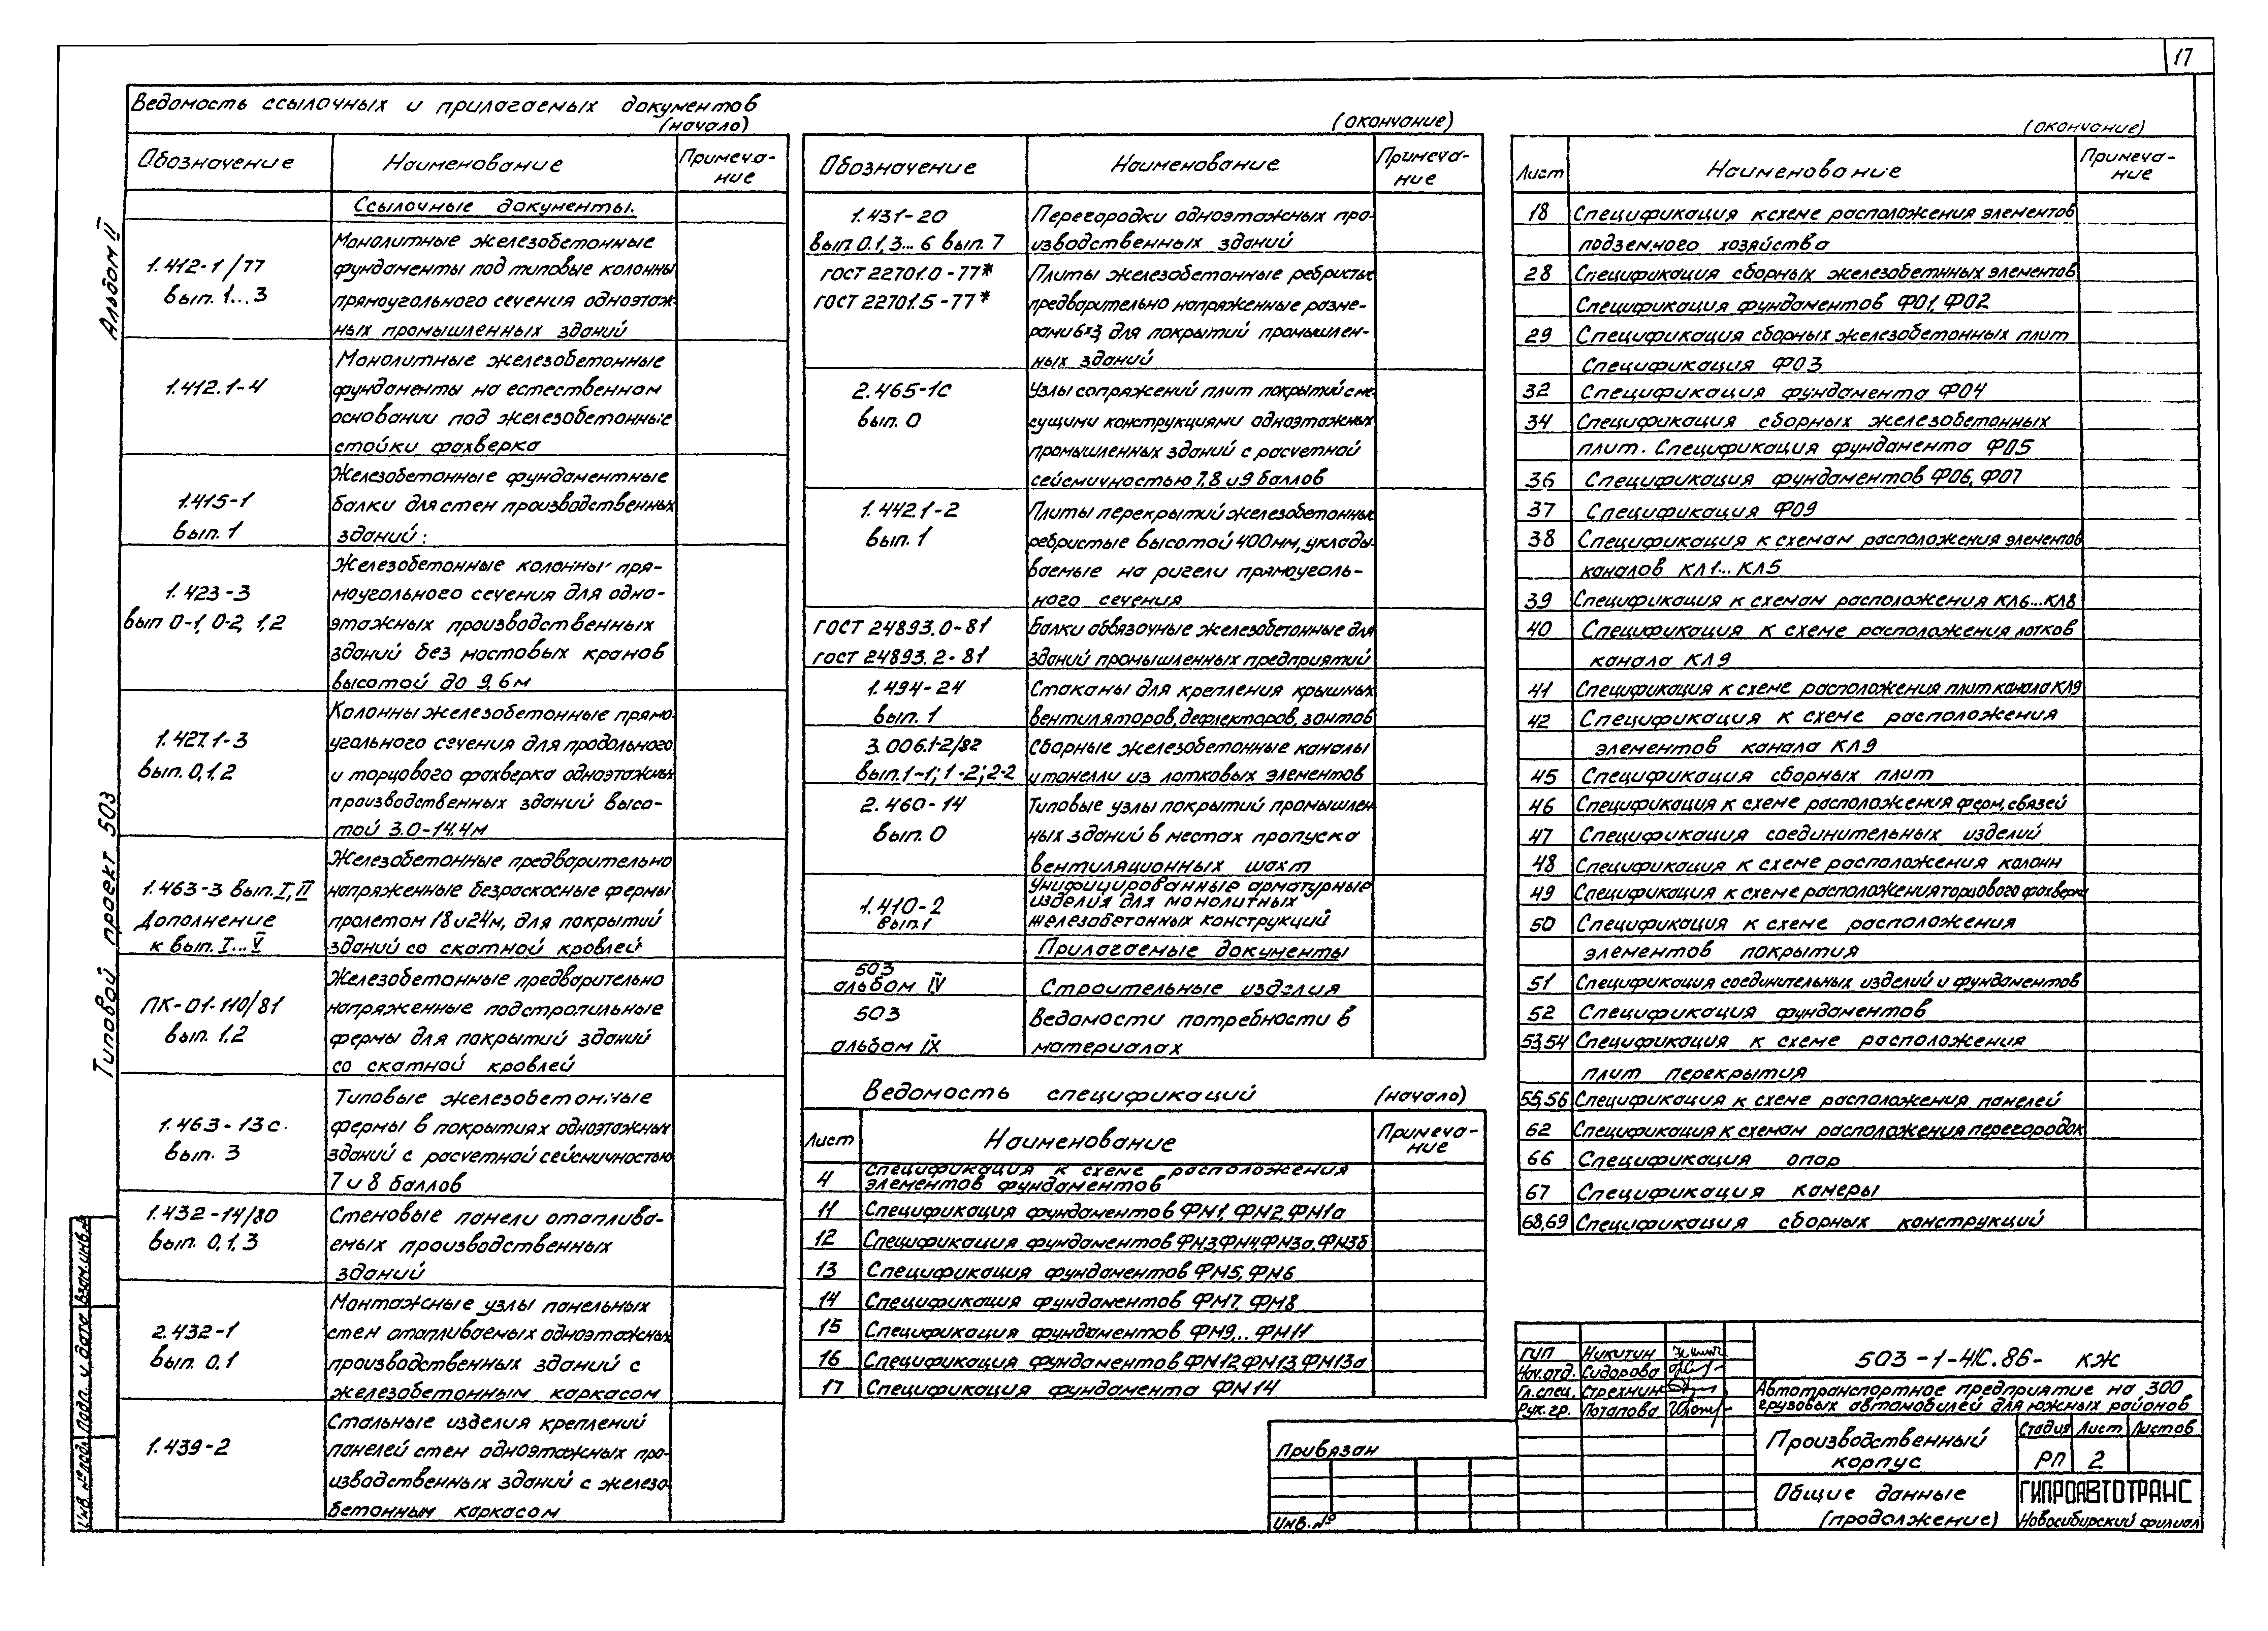 17
Альбом II
Типовой проект 503
Ведомость ссылочных и прилагаемых документов
(начало)
Обозначение Наименование Примеча-
ние
Ссылочные документы.
Монолитные железобетонные
1.412-1/77 фундаменты под типовые колонны
вып. 1...3 прямоугольного сечения одноэтаж-
ных промышленных зданий
Монолитные железобетонные
1.412.1-4 фундаменты на естественном
основании под железобетонные
стойки фахверка
Железобетонные фундаментные
1.415-1 балки для стен производственных
вып. 1 зданий:
Железобетонные колонны пря-
1.423-3 моугольного сечения для одно-
вып 0-1, 0-2, 1,2 этажных производственных
зданий без мостовых кранов
высотой до 9,6м
Колонны железобетонные прямо-
1.427.1-3 угольного сечения для продольного
вып. 0,1,2 и торцового фахверка одноэтажных
производственных зданий высо-
той 3.0-14.4м
Железобетонные предварительно
1.463-3 вып. I, II напряженные безраскосные фермы
Дополнение пролетом 18 и 24м, для покрытий
к вып. I...V зданий со скатной кровлей
Железобетонные предварительно
ПК-01-110/81 напряженные подстропильные
вып. 1,2 фермы для покрытий зданий
со скатной кровлей
Типовые железобетонные
1.463-13с. фермы в покрытиях одноэтажных
вып. 3 зданий с расчетной сейсмичностью
7 и 8 баллов
1.432-14/80 Стеновые панели отаплива-
вып. 0,1,3 емых производственных
зданий
Монтажные узлы панельных
2.432-1 стен отапливаемых одноэтажных
вып. 0,1 производственных зданий с
железобетонным каркасом
Стальные изделия креплений
1.439-2 панелей стен одноэтажных про-
изводственных зданий с железо
бетонным каркасом
(окончание)
Обозначение Наименование Примеча-
ние
1.431-20 Перегородки одноэтажных про-
вып. 0.1, 3... 6 вып. 7 изводственных зданий
ГОСТ 22701.0-77* Плиты железобетонные ребристые
ГОСТ 22701.5-77* предварительно напряженные разме-
рами 6×3, для покрытий промышлен-
ных зданий
2.465-1с Узлы сопряжений плит покрытий с не-
вып. 0 сущими конструкциями одноэтажных
промышленных зданий с расчетной
сейсмичностью 7,8 и 9 баллов
1.442.1-2 Плиты перекрытий железобетонные
вып. 1 ребристые высотой 400мм, уклады-
ваемые на ригели прямоуголь-
ного сечения
ГОСТ 24893.0-81 Балки обвязочные железобетонные для
ГОСТ 24893.2-81 зданий промышленных предприятий
1.494-24 Стаканы для крепления крышных
вып. 1 вентиляторов, дефлекторов, зонтов
3.006.1-2/82 Сборные железобетонные каналы
вып. 1-1; 1-2; 2-2 и тонелли из лотковых элементов
2.460-14 Типовые узлы покрытий промышлен
вып. 0 ных зданий в местах пропуска
вентиляционных шахт
Унифицированные арматурные
1.410-2 изделия для монолитных
вып.1 железобетонных конструкций
Прилагаемые документы
503
альбом IV Строительные изделия
503 Ведомости потребности в
альбом IX материалах
Ведомость спецификаций (начало)
Лист Наименование Примеча-
ние
4 Спецификация к схеме расположения
элементов фундаментов
11 Спецификация фундаментов ФМ1, ФМ2, ФМ1а
12 Спецификация фундаментов ФМ3,ФМ4,ФМ3а,ФМ3б
13 Спецификация фундаментов ФМ5, ФМ6
14 Спецификация фундаментов ФМ7, ФМ8
15 Спецификация фундаментов ФМ9... ФМ11
16 Спецификация фундаментов ФМ12,ФМ13,ФМ13а
17 Спецификация фундамента ФМ14
(окончание)
Лист Наименование Примеча-
ние
18 Спецификация к схеме расположения элементов
подземного хозяйства
28 Спецификация сборных железобетнных элементов
Спецификация фундаментов Ф01, Ф02
29 Спецификация сборных железобетонных плит
Спецификация Ф03
32 Спецификация фундамента Ф04
34 Спецификация сборных железобетонных
плит. Спецификация фундамента Ф05
36 Спецификация фундаментов Ф06, Ф07
37 Спецификация Ф09
38 Спецификация к схемам расположения элементов
каналов КЛ1... КЛ5
39 Спецификация к схемам расположения КЛ6...КЛ8
40 Спецификация к схеме расположения лотков
канала КЛ9
41 Спецификация к схеме расположения плит канала КЛ9
42 Спецификация к схеме расположения
элементов канала КЛ9
45 Спецификация сборных плит
46 Спецификация к схеме расположения ферм, связей
47 Спецификация соединительных изделий
48 Спецификация к схеме расположения колонн
49 Спецификация к схеме расположения торцового фахверка
50 Спецификация к схеме расположения
элементов покрытия
51 Спецификация соединительных изделий и фундаментов
52 Спецификация фундаментов
53,54 Спецификация к схеме расположения
плит перекрытия
55,56 Спецификация к схеме расположения панелей
62 Спецификация к схемам расположения перегородок
66 Спецификация опор
67 Спецификация камеры
68,69 Спецификация сборных конструкций
ГИП Никитин
Нач.отд. Сидорова
Гл.спец. Стрехнин
Рук.гр. Потапова
503-1-41с.86- КЖ
Автотранспортное предприятие на 300
грузовых автомобилей для южных районов
Производственный
корпус
Стадия Лист Листов
РП 2
Общие данные
(продолжение)
ГИПРОАВТОТРАНС
Новосибирский филиал
Привязан
Инв.№
Взам.инв.№
Подп. и дата
Инв. № подл.